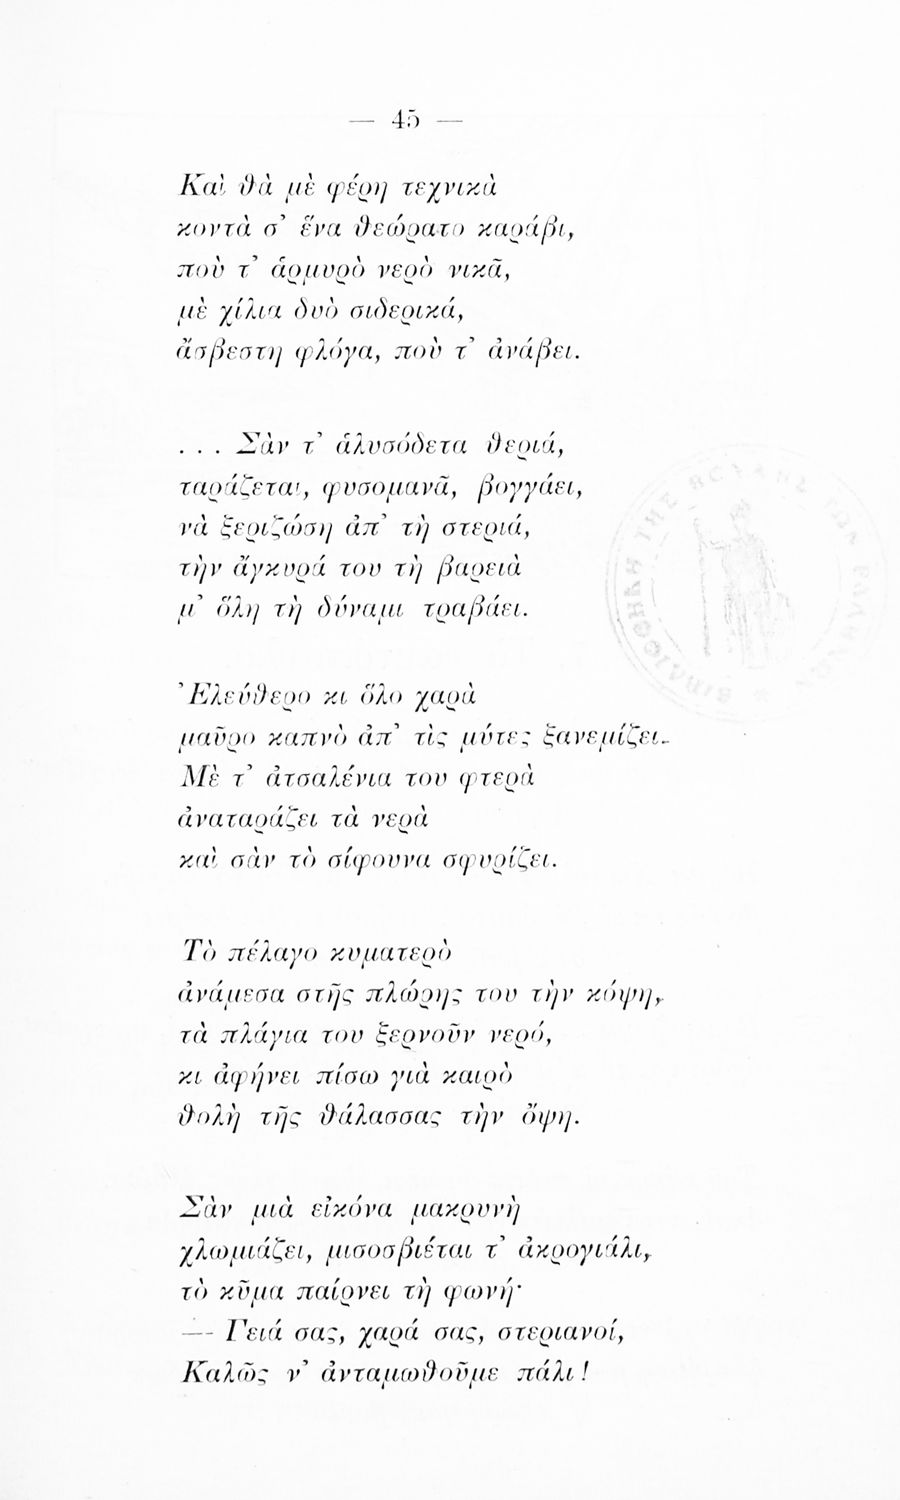 — 45 —
Καὶ θὰ μὲ φέρῃ τεχνικὰ
κοντὰ σ’ ἕνα θεώρατο καράβι,
ποὺ τ’ ἁρμυρὸ νερὸ νικᾶ,
μὲ χίλια δυὸ σιδερικά,
ἄσβεστη φλόγα, ποὺ τ’ ἀνάβει.
. . . Σὰν τ’ ἁλυσόδετα θεριά,
ταράζεται, φυσομανᾶ, βογγάει,
νὰ ξεριζώσῃ ἀπ’ τὴ στεριά,
τὴν ἄγκυρά του τὴ βαρειὰ
μ’ ὅλη τὴ δύναμι τραβάει.
Ἐλεύθερο κι ὅλο χαρὰ
μαῦρο καπνὸ ἀπ’ τὶς μύτες ξανεμίζει.
Μὲ τ’ ἀτσαλένια του φτερὰ
ἀναταράζει τὰ νερὰ
καὶ σὰν τὸ σίφουνα σφυρίζει.
Τὸ πέλαγο κυματερὸ
ἀνάμεσα στῆς πλώρης του τὴν κόψη,
τὰ πλάγια του ξερνοῦν νερό,
κι ἀφήνει πίσω γιὰ καιρὸ
θολὴ τῆς θάλασσας τὴν ὄψη.
Σὰν μιὰ εἰκόνα μακρυνὴ
χλωμιάζει, μισοσβιέται τ’ ἀκρογιάλι,
τὸ κῦμα παίρνει τὴ φωνή·
— Γειά σας, χαρά σας, στεριανοί,
Καλῶς ν’ ἀνταμωθοῦμε πάλι !
ΒΙΒΛΙΟΘΗΚΗ ΤΗΣ ΒΟΥΛΗΣ ΤΩΝ ΕΛΛΗΝΩΝ